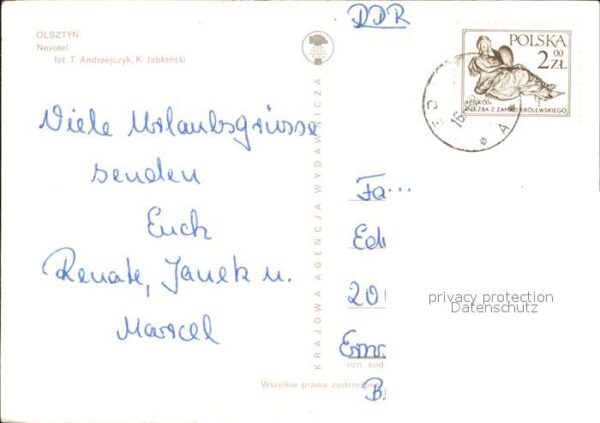 OLSZTYN
Novotel
fot. T. Andrzejczyk, K. Jabłoński
Viele Urlaubsgrüsse
senden
Euch
Renate, Janek u.
Marcel
KRAJOWA AGENCJA WYDAWNICZA
Wszelkie prawa zastrzeżone
DDR
POLSKA
2 00 ZŁ
RZEŹBA Z ZAMKU KRÓLEWSKIEGO
Fa...
privacy protection
Datenschutz
ozn. kod.